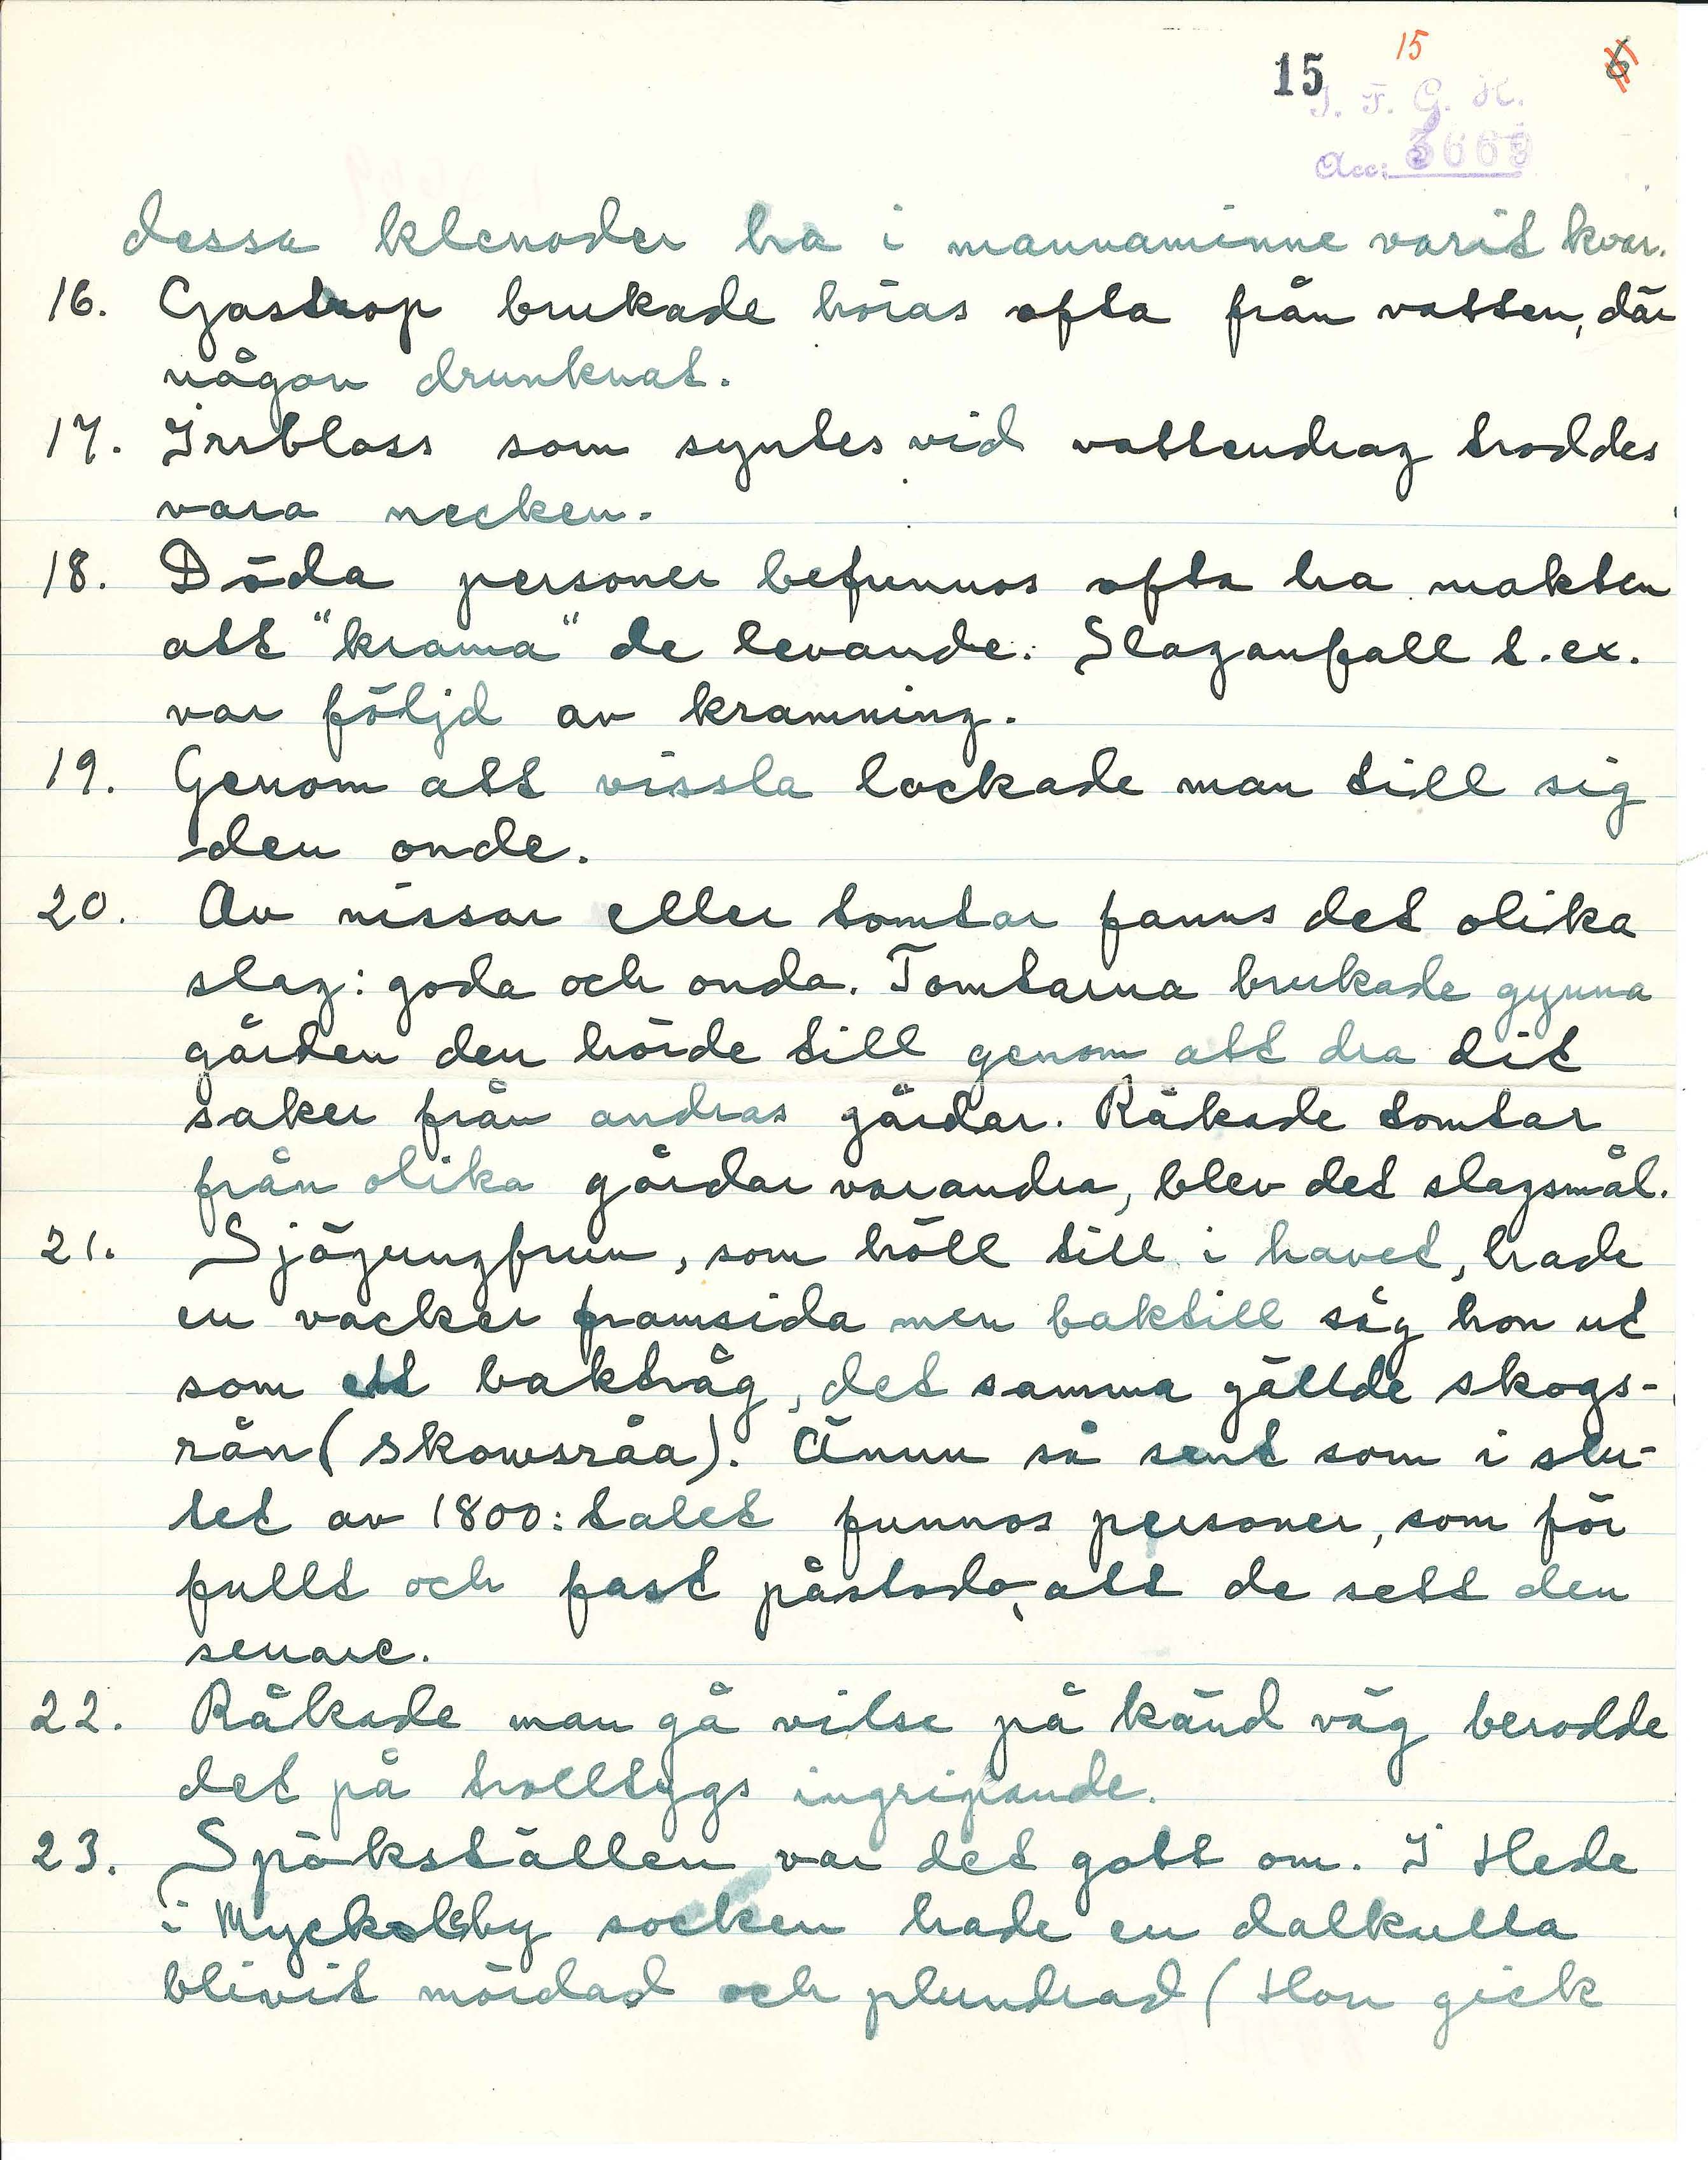 15
15
6
I. F. G. H.
Acc: 3669
dessa klenoder ha i mannaminne varit kvar.
16. Gastrop brukade höras ofta från vatten, där
någon drunknat.
17. Irrbloss som syntes vid vattendrag troddes
vara necken.
18. Döda personer befunnos ofta ha makten
att "krama" de levande. Slaganfall t.ex.
var följd av kramning.
19. Genom att vissla lockade man till sig
den onde.
20. Av nissar eller tomtar fanns det olika
slag: goda och onda. Tomtarna brukade gynna
gården den hörde till genom att dra dit
saker från andras gårdar. Råkade tomtar
från olika gårdar varandra, blev det slagsmål.
21. Sjöjungfrun, som höll till i havet, hade
en vacker framsida men baktill såg hon ut
som ett baktråg, det samma gällde skogs-
rån (skowsråa). Ännu så sent som i slu-
tet av 1800:talet funnos personer, som för
fullt och fast påstodo, att de sett den
senare.
22. Råkade man gå vilse på känd väg berodde
det på trolltygs ingripande.
23. Spökställen var det gott om. I Hede
i Myckleby socken hade en dalkulla
blivit mördad och plundrad (Hon gick